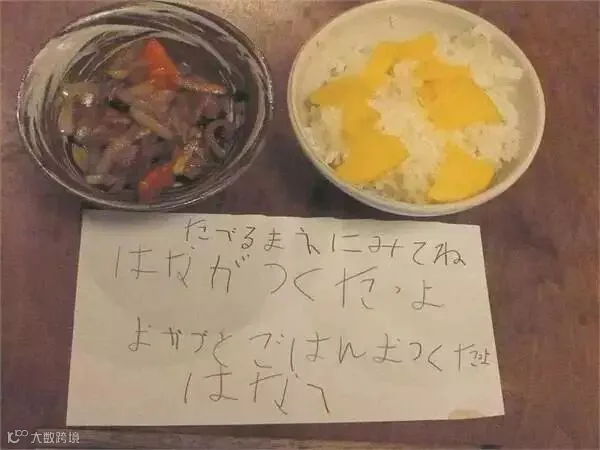 たべるまえにみてね
はながつくたよ
おかづとごはんおつくたよ
はなへ
大数跨境